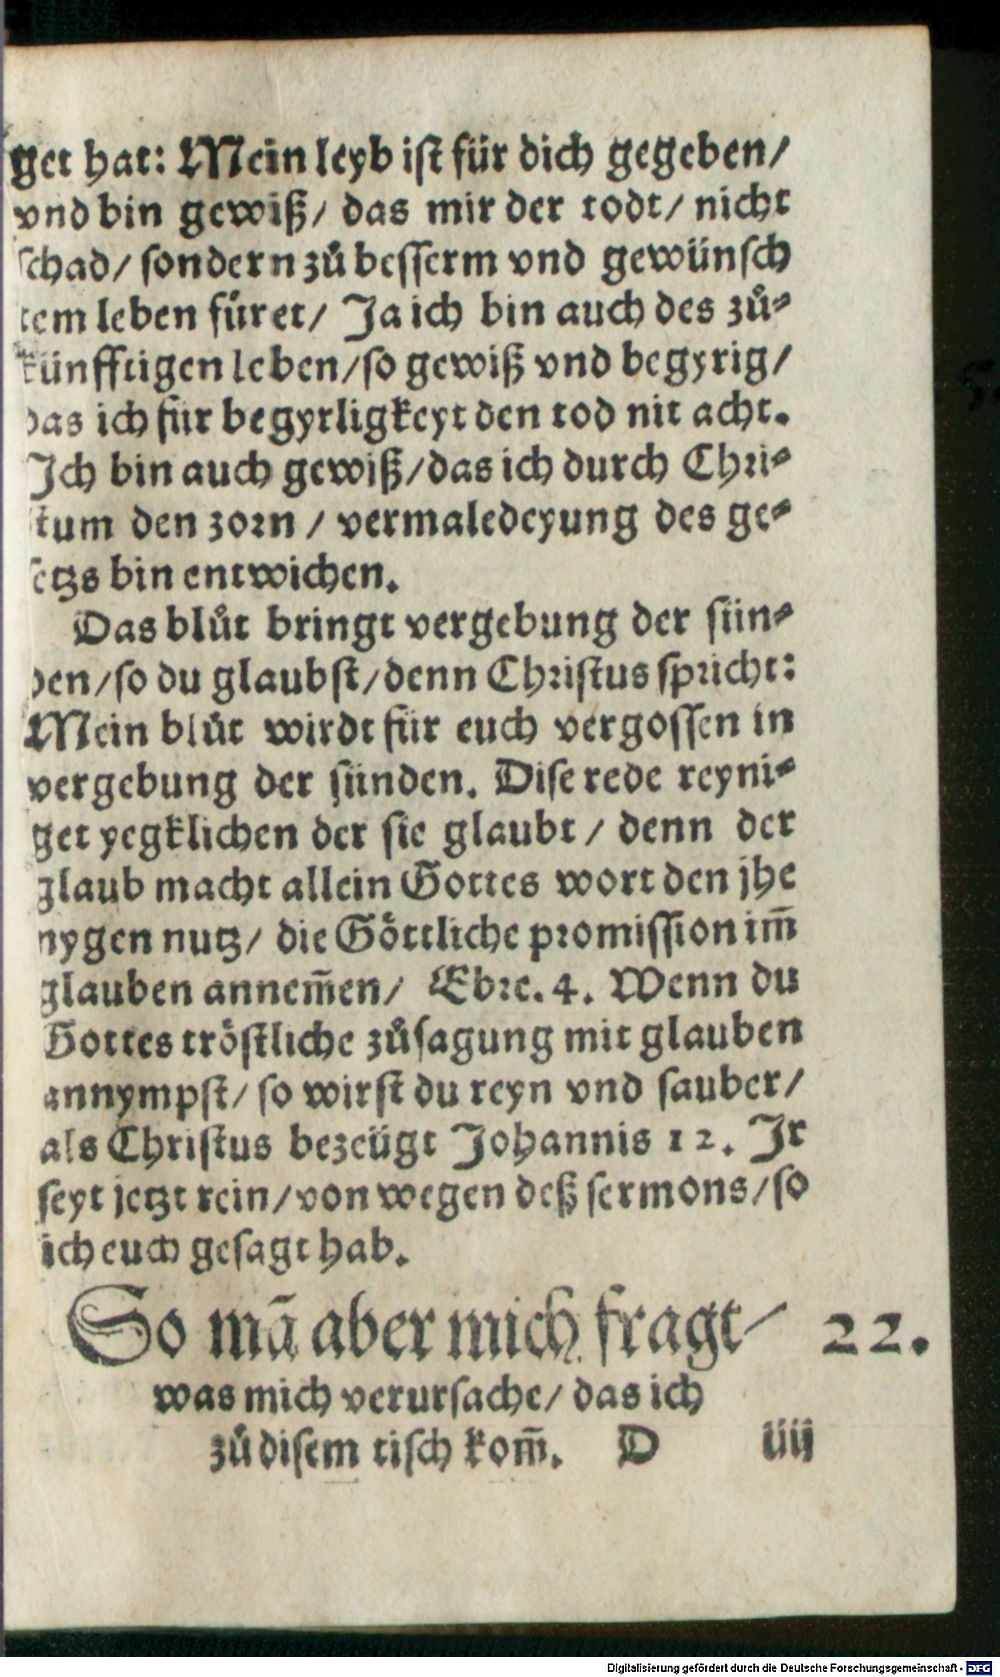 get hat: Mein leyb ist für dich gegeben/
vnd bin gewiß/ das mir der todt/ nicht
schad/ sondern zů besserm vnd gewünsch
tem leben füret/ Ja ich bin auch des zů⸗
künfftigen leben/so gewiß vnd begyrig/
das ich für begyrligkeyt den tod nit acht.
Ich bin auch gewiß/das ich durch Chri⸗
stum den zorn / vermaledeyung des ge⸗
setzs bin entwichen.
Das blůt bringt vergebung der sün⸗
den/so du glaubst/denn Christus spricht:
Mein blůt wirdt für euch vergossen in
vergebung der sünden. Dise rede reyni⸗
get yegklichen der sie glaubt / denn der
glaub macht allein Gottes wort den jhe
nygen nutz/ die Göttliche promission im̄
glauben annem̄en/ Ebre. 4. Wenn du
Gottes tröstliche zůsagung mit glauben
annympst/ so wirst du reyn vnd sauber/
als Christus bezeügt Johannis 12. Ir
seyt jetzt rein/von wegen deß sermons/so
ich euch gesagt hab.
So mā aber mich fragt/ 22.
was mich verursache/ das ich
zů disem tisch kom̄. D iiij
Digitalisierung gefördert durch die Deutsche Forschungsgemeinschaft - DFG